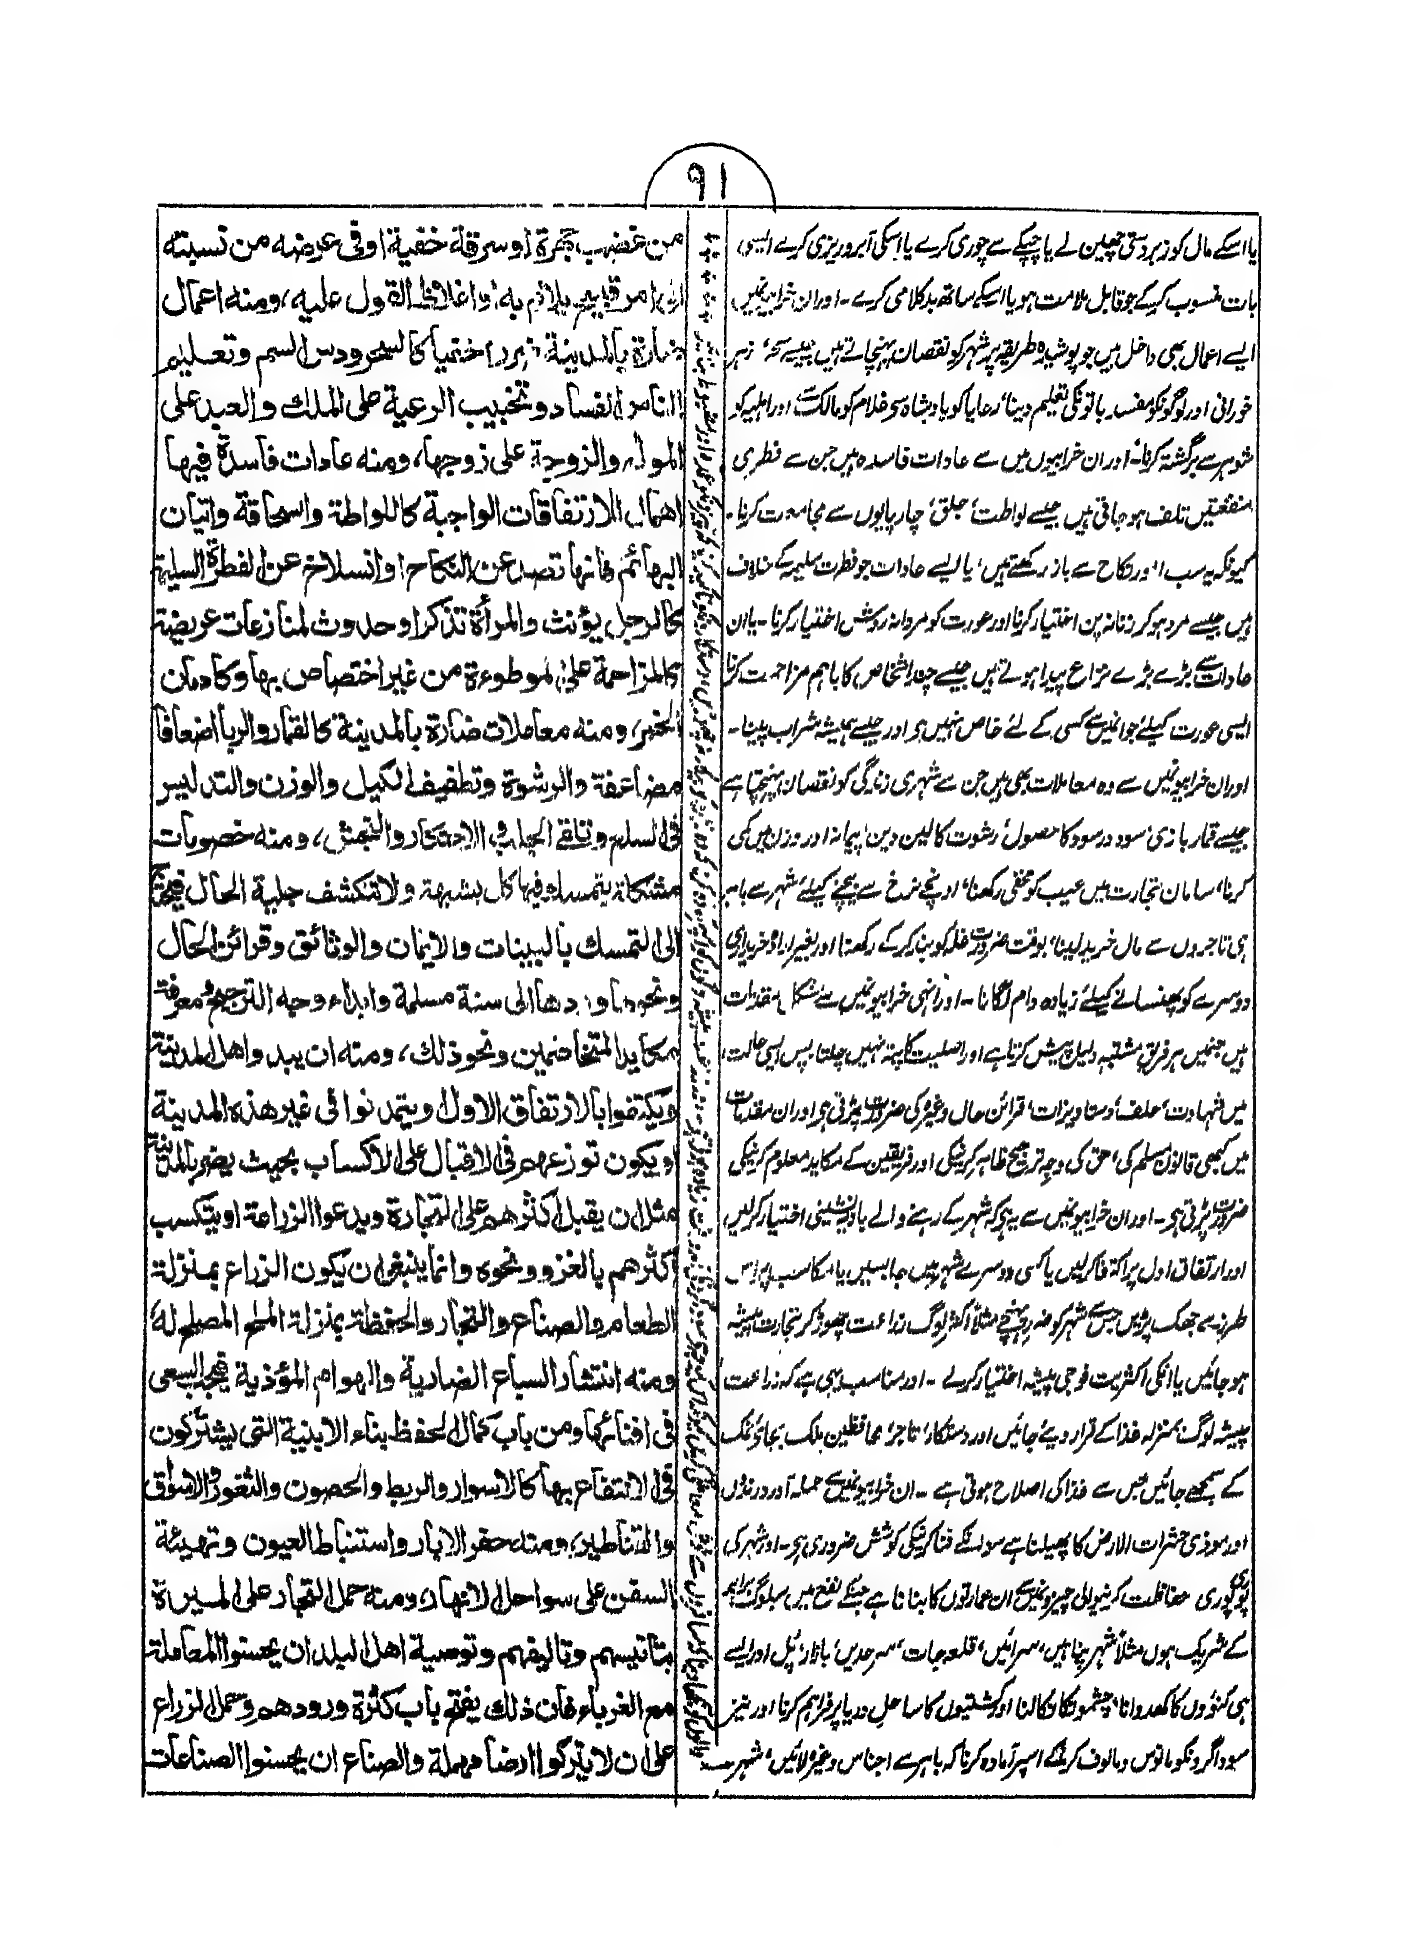 ٩١
یا اسکے مال کو زبردستی چھین لے یا چپکے سے چوری کرے یا اسکی آبرو ریزی کرے ایسی
بات منسوب کرکے جو قابل ملامت ہو یا اسکے ساتھ بدکلامی کرے ۔ اور ان خرابیونمیں
ایسے اعمال بھی داخل ہیں جو پوشیدہ طریقہ پر شہر کو نقصان پہنچاتے ہیں جیسے سحر، زہر
خورانی اور لوگونکو مفسد باتونکی تعلیم دینا، رعایا کو بادشاہ سے غلام کو مالک سے اور اہلیہ کو
شوہر سے برگشتہ کرنا۔ اور ان خرابیوں میں سے عادات فاسدہ ہیں جن سے فطری
منفعتیں تلف ہو جاتی ہیں جیسے لواطت، جلق، چارپایوں سے مجامعت کرنا۔
کیونکہ یہ سب امور نکاح سے باز رکھتے ہیں، یا ایسے عادات جو فطرت سلیمہ کے خلاف
ہیں جیسے مرد ہو کر زنانہ پن اختیار کرنا اور عورت کو مردانہ روش اختیار کرنا ۔ یا ان
عادات سے بڑے بڑے نزاع پیدا ہوتے ہیں جیسے چند اشخاص کا باہم مزاحمت کرنا
ایسی عورت کیلئے جو انمیں سے کسی کے لئے خاص نہیں ہو اور جیسے ہمیشہ شراب پینا۔
اور ان خرابیونمیں سے وہ معاملات بھی ہیں جن سے شہری زندگی کو نقصان پہنچتا ہے
جیسے قمار بازی، سود در سود کا حصول، رشوت کا لین دین، پیمانہ اور وزن میں کمی
کرنا، سامان تجارت میں عیب کو مخفی رکھنا، اونچے نرخ سے بیچنے کیلئے شہر سے باہر
ہی تاجروں سے مال خرید لینا، بوقت ضرورت غلہ کو بند کرکے رکھنا اور بغیر ارادہ خریداری
دوسرے کو پھنسانے کیلئے زیادہ دام لگانا۔ اور انہی خرابیونمیں سے مشکل مقدمات
ہیں جنمیں ہر فریق مشتبہ دلیل پیش کرتا ہے اور اصلیت کا پتہ نہیں چلتا پس ایسی حالت
میں شہادت، حلف، دستاویزات، قرائن حال وغیرہ کی ضرورت پڑتی ہے اور ان مقدمات
میں کبھی قانون مسلم کی، حق کی وجہ ترجیح ظاہر کرنیکی اور فریقین کے مکاید معلوم کرنیکی
ضرورت پڑتی ہے۔ اور ان خرابیونمیں سے یہ ہے کہ شہر کے رہنے والے بادیہ نشینی اختیار کرلیں
اور ارتفاق اول پر اکتفا کرلیں یا کسی دوسرے شہر میں جا بسیں یا مکاسب پر اس
طرز سے جھک پڑیں جس سے شہر کو ضرر پہنچے مثلاً اکثر لوگ زراعت چھوڑ کر تجارت پیشہ
ہو جائیں یا انکی اکثریت فوجی پیشہ اختیار کرلے ۔ اور مناسب یہی ہے کہ زراعت
پیشہ لوگ بمنزلہ غذا کے قرار دیئے جائیں اور دستکار، تاجر، محافظین ملک بجائے نمک
کے سمجھے جائیں جس سے غذا کی اصلاح ہوتی ہے ۔ ان خرابیونمیں سے حملہ آور درندوں
اور موذی حشرات الارض کا پھیلنا ہے سو انکے فنا کرنیکی کوشش ضروری ہے۔ اور شہر کی
پوری پوری حفاظت کرنیوالی چیزونمیں سے ان عمارتوں کا بنانا ہے جنکے نفع میں سب لوگ برابر
کے شریک ہوں مثلاً شہر پناہیں، سرائیں، قلعہ جات، سرحدیں، بازار، پل اور ایسے
ہی کنوؤں کا کھدوانا، چشمونکا نکالنا اور کشتیوں کا ساحل دریا پر فراہم کرنا اور نیز
سوداگرونکو مانوس و مالوف کرکے اسپر آمادہ کرنا کہ باہر سے اجناس وغیرہ لائیں، شہر
من غضب جهرة او سرقة خفية او في عرضه من نسبته
الى امر قبيح يلام به، او اغلاظ القول عليه، ومنه اعمال
ضارة بالمدينة ضررا خفيا كالسحر ودس السم وتعليم
الناس الفساد وتخبيب الرعية على الملك والعبد على
المولى والزوجة على زوجها، ومنه عادات فاسدة فيها
اهمال للارتفاقات الواجبة كاللواطة واسحاقة واتيان
البهائم فانها تصد عن النكاح او انسلاخ عن الفطرة السليمة
كالرجل يؤنث والمرأة تذكر او حدوث لمنازعات عريضة
كالمزاحمة على الموطوءة من غير اختصاص بها وكادمان
الخمر، ومنه معاملات ضارة بالمدينة كالقمار والربا اضعافا
مضاعفة والرشوة وتطفيف الكيل والوزن والتدليس
في السلع وتلقي الجلب في الاحتكار والنجش، ومنه خصومات
مشكلة يتمسك فيها كل بشبهة ولا تنكشف جلية الحال فيحتاج
الى التمسك بالبينات والايمان والوثائق وقرائن الحال
ونحوها وردها الى سنة مسلمة وابداء وجه الترجيح ومعرفة
مكايد المتخاصمين ونحو ذلك، ومنه ان يبدو اهل المدينة
ويكتفوا بالارتفاق الاول او يتمدنوا في غير هذه المدينة
او يكون توزعهم في الاقبال على الاكساب بحيث يضر بالمدينة
مثل ان يقبل اكثرهم على التجارة ويدعوا الزراعة او يتكسب
اكثرهم بالغزو ونحوه وانما ينبغي ان يكون الزراع بمنزلة
الطعام والصناع والتجار والحفظة بمنزلة الملح المصلح له،
ومنه انتشار السباع الضارية والهوام المؤذية فيجب السعي
في افنائها ومن باب كمال الحفظ بناء الابنية التي يشتركون
في الانتفاع بها كالاسوار والربط والحصون والثغور والاسواق
والقناطير، ومنه حفر الابار واستنباط العيون وتهيئة
السفن على سواحل الانهار، ومنه حمل التجار على الميرة
بتانيسهم وتاليفهم وتوصية اهل البلد ان يحسنوا المعاملة
مع الغرباء فان ذلك يفتح باب كثرة ورودهم وحمل الزراع
على ان لا يتركوا ارضا مهملة والصناع ان يحسنوا الصناعات